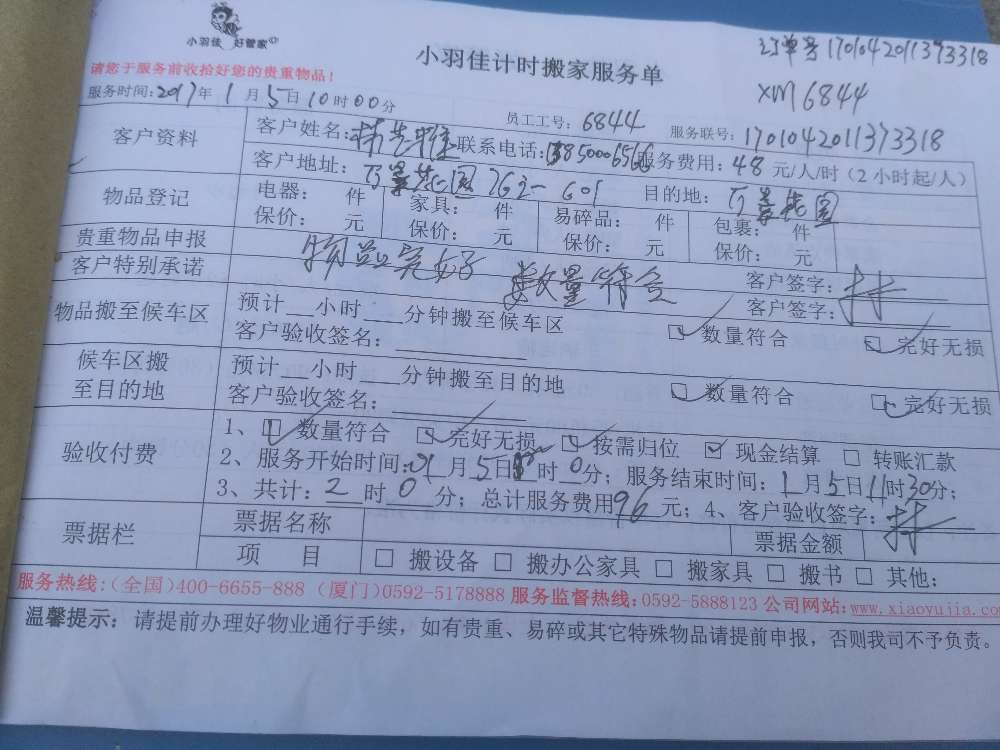 小羽佳 好管家
请您于服务前收拾好您的贵重物品！
小羽佳计时搬家服务单
订单号 1701042011373318
XM6844
服务时间：2017年1月5日10时00分
员工工号：6844
服务联号：1701042011373318
客户资料
客户姓名： 联系电话： 服务费用：48元/人/时（2小时起/人）
客户地址： 花园 目的地： 花园
物品登记
电器： 件 家具： 件 易碎品： 件 包裹： 件
保价： 元 保价： 元 保价： 元 保价： 元
贵重物品申报 客户签字：
物品完好 数量符合
客户特别承诺 客户签字：
物品搬至候车区
预计__小时___分钟搬至候车区 数量符合 完好无损
客户验收签名：
候车区搬至目的地
预计__小时___分钟搬至目的地 数量符合 完好无损
客户验收签名：
验收付费
1、 数量符合 完好无损 按需归位 现金结算 转账汇款
2、服务开始时间： 月5日 时0分；服务结束时间：1月5日11时30分；
3、共计：2时0分；总计服务费用96元；4、客户验收签字：
票据栏
票据名称 票据金额
项 目 搬设备 搬办公家具 搬家具 搬书 其他：
服务热线：（全国）400-6655-888（厦门）0592-5178888 服务监督热线：0592-5888123 公司网站：www.xiaoyujia.com
温馨提示：请提前办理好物业通行手续，如有贵重、易碎或其它特殊物品请提前申报，否则我司不予负责。